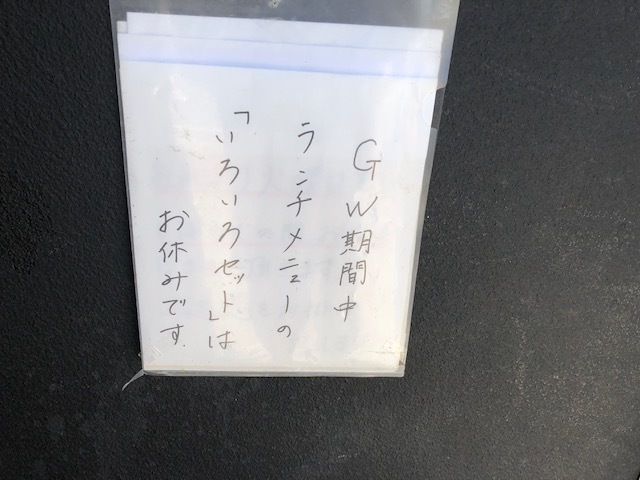 GW期間中
ランチメニューの
「いろいろセット」は
お休みです.